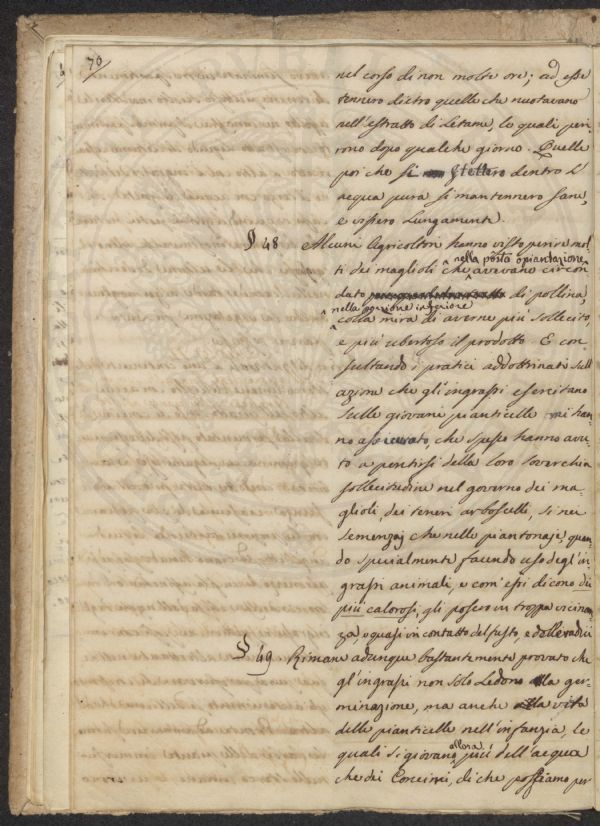 70
nel corso di non molte ore; ad esse
tennero dietro quelle che nuotavano
nell'estratto di Letame, le quali peri-
rono dopo qualche giorno. Quelle
poi che si stettero dentro l'
acqua pura si mantennero sane,
e vissero lungamente.
§ 48 Alcuni Agricoltori hanno visto perire mol-
ti dei maglioli che nella posta o piantazione avevano circon
dato nella porzione inferiore di pollina
colla mira di averne più sollecito,
e più ubertoso il prodotto. E con
sultando i pratici addottrinati sull'
azione che gl'ingrassi esercitano
sulle giovani pianticelle mi han-
no assicurato, che spesso hanno avu-
to a pentirsi della loro soverchia
sollecitudine nel governo dei ma-
glioli, dei teneri arboscelli, sì nei
semenzaj che nelle piantonaje, quan-
do specialmente facendo uso degl'in
grassi animali, e com'essi dicono dei
più calorosi, gli posero in troppa vicinan-
za, o quasi in contatto del fusto, e delle radici
§ 49 Rimane adunque bastantemente provato che
gl'ingrassi non solo ledono la ger-
minazione, ma anche la vita
delle pianticelle nell'infanzia, le
quali si giovano allora più dell'acqua
che dei Concimi, di che possiamo per